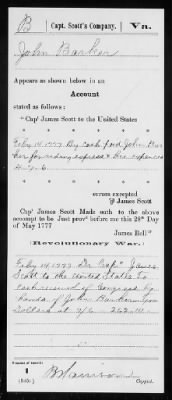 B | Capt. Scott's Company. | Va.
John Barker
Appears as shown below in an
Account
stated as follows:
"Capt James Scott to the United States
* * * * * * *
Feby 14, 1777 By cash paid John Bar
ker for riding express & his expences
4-7-6
* * * * * * *
errors excepted
@ James Scott
Capt James Scott Made oath to the above
account to be Just prov'd before me this 29th Day
of May 1777
James Bell"
(Revolutionary War.)
Feby 14, 1777 Dr Capt James
Scott to the United States To
cash received of Congress by
hands of John Banker
Dollars at 7/6 262.10
Number of record:
1
(545c)
Harrison
Copyist.